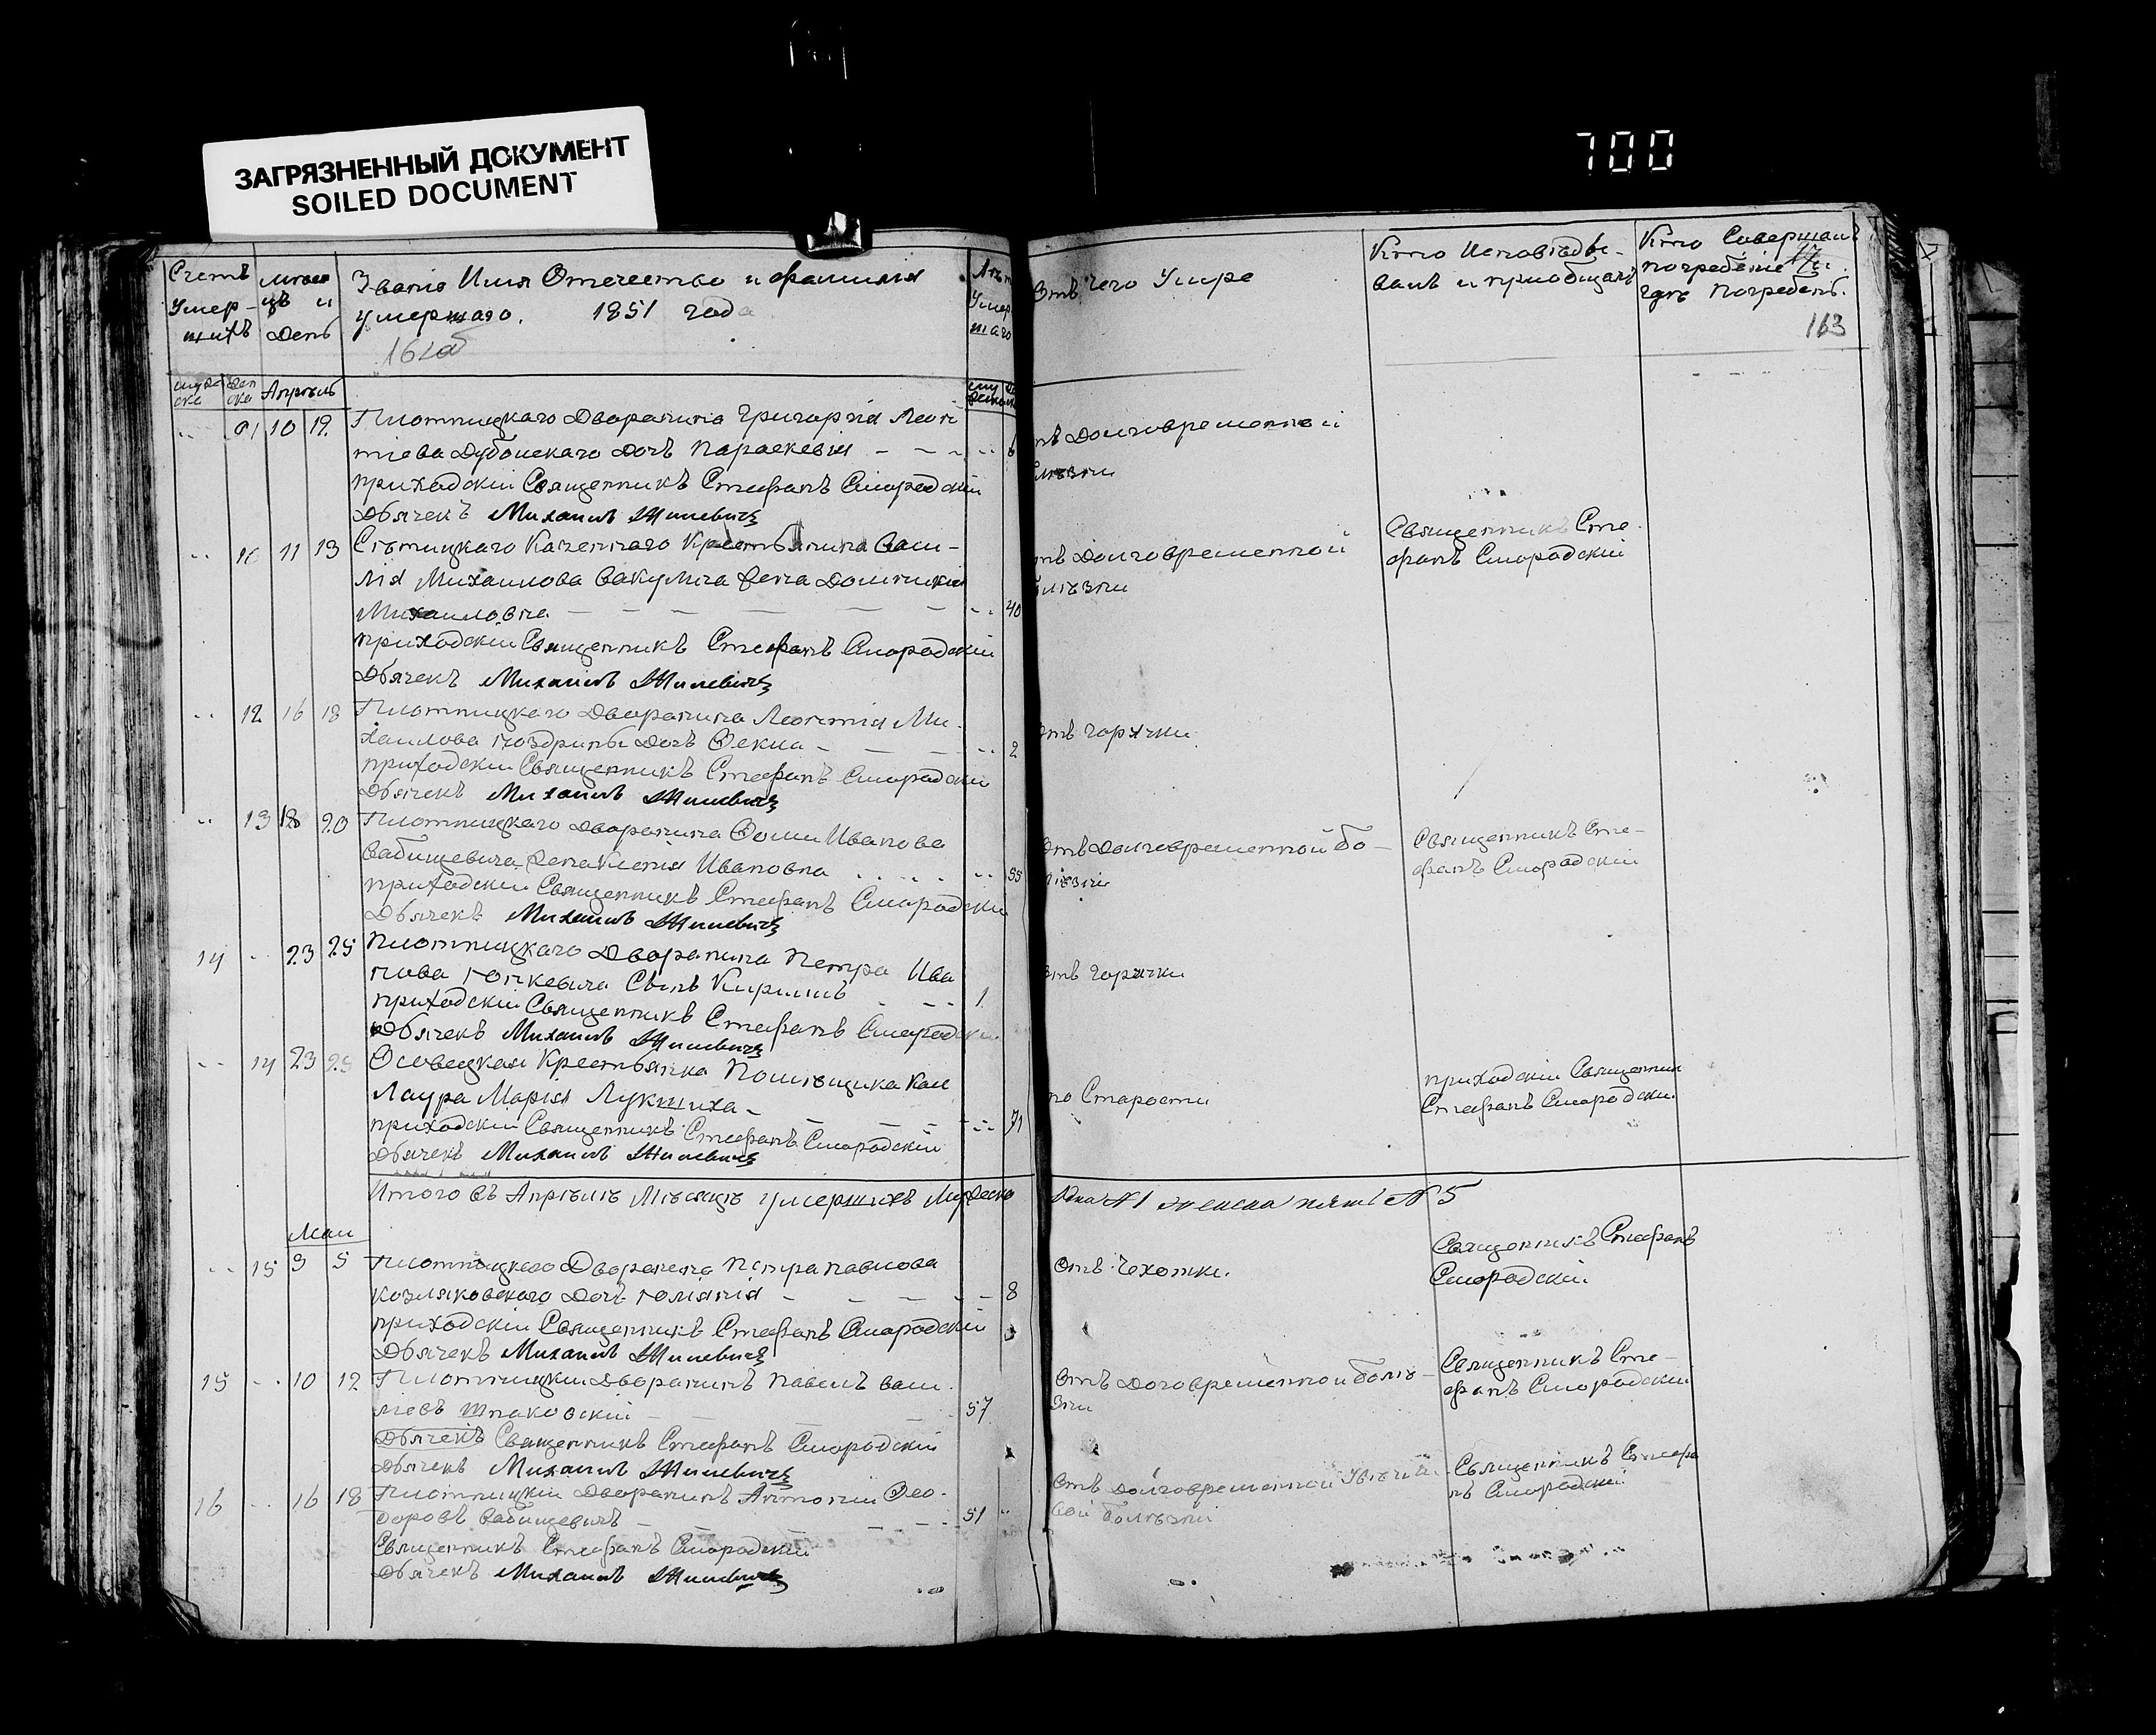 ЗАГРЯЗНЕННЫЙ ДОКУМЕНТ
SOILED DOCUMENT
700
Счетъ
Умер-
шихъ
Месяцъ и
День
Званіе Имя Отечество и фамилія
умершаго. 1851 года
162об
Летъ
Умер
шаго
Отъ чего Умре
Кто Исповѣды-
валъ и пріобщалъ
Кто Совершалъ
погребеніе и
гдѣ погребены.
163
Апрѣль
10 12 Плотницкаго Дворанина Григорія Леон
тіева Дубоискаго Дочъ Параскевія 6
приходскій Священникъ Стефанъ Смородскій
Дьячекъ Михаилъ Жилевичъ
отъ Долговременной
болѣзни
10 11 13 Сѣтицкаго Казеннаго Крестьянина Васи-
лія Михаилова Вакулича Жена Доминикія
Михаиловна 40
приходскій Священникъ Стефанъ Смородскій
Дьячекъ Михаилъ Жилевичъ
отъ Долговременной
болѣзни
Священникъ Сте-
фанъ Смородскій
12 16 18 Плотницкаго Дворанина Леонтія Ми-
хаилова Поздрины Дочъ Фекла 2
приходскій Священникъ Стефанъ Смородскій
Дьячекъ Михаилъ Жилевичъ
Отъ горячки
13 18 20 Плотницкаго Дворанина Фомы Иванова
Бабицевича Жена Ксенія Ивановна 55
приходскій Священникъ Стефанъ Смородскій
Дьячекъ Михаилъ Жилевичъ
Отъ Долговременной бо-
лѣзни
Священникъ Сте-
фанъ Смородскій
14 23 25 Плотницкаго Дворанина Петра Ива
нова Гопкевича Сынъ Кирилъ 1
приходскій Священникъ Стефанъ Смородскій
Дьячекъ Михаилъ Жилевичъ
Отъ горячки
14 23 25 Осовецкая Крестьянка Помѣщика Кан
Лаура Марія Лукшиха 71
приходскій Священникъ Стефанъ Смородскій
Дьячекъ Михаилъ Жилевичъ
по Старости
приходскій Священник
Стефанъ Смородскій
Итого въ Апрѣлѣ Мѣсяцѣ умершихъ Мужеска Одна №1 женска пять №5
Маи
15 3 5 Плотницкаго Дворанина Петра Павлова
Козляковскаго Дочъ Юліанія 8
приходскій Священникъ Стефанъ Смородскій
Дьячекъ Михаилъ Жилевичъ
Отъ Чехотки.
Священникъ Стефанъ
Смородскій
15 10 12 Плотницкіи Дворанинъ Павелъ Васи
лiевъ Шпаковскій 57
Дьячекъ Священникъ Стефанъ Смородскій
Дьячекъ Михаилъ Жилевичъ
Отъ Долговременной болѣ-
зни
Священникъ Сте-
фанъ Смородскій
16 16 18 Плотницкіи Дворанинъ Антоніи Фео-
доровъ Бабицевичъ 51
Священникъ Стефанъ Смородскій
Дьячекъ Михаилъ Жилевичъ
Отъ Долговременной
болѣзни
Священникъ Стефа
нъ Смородскій